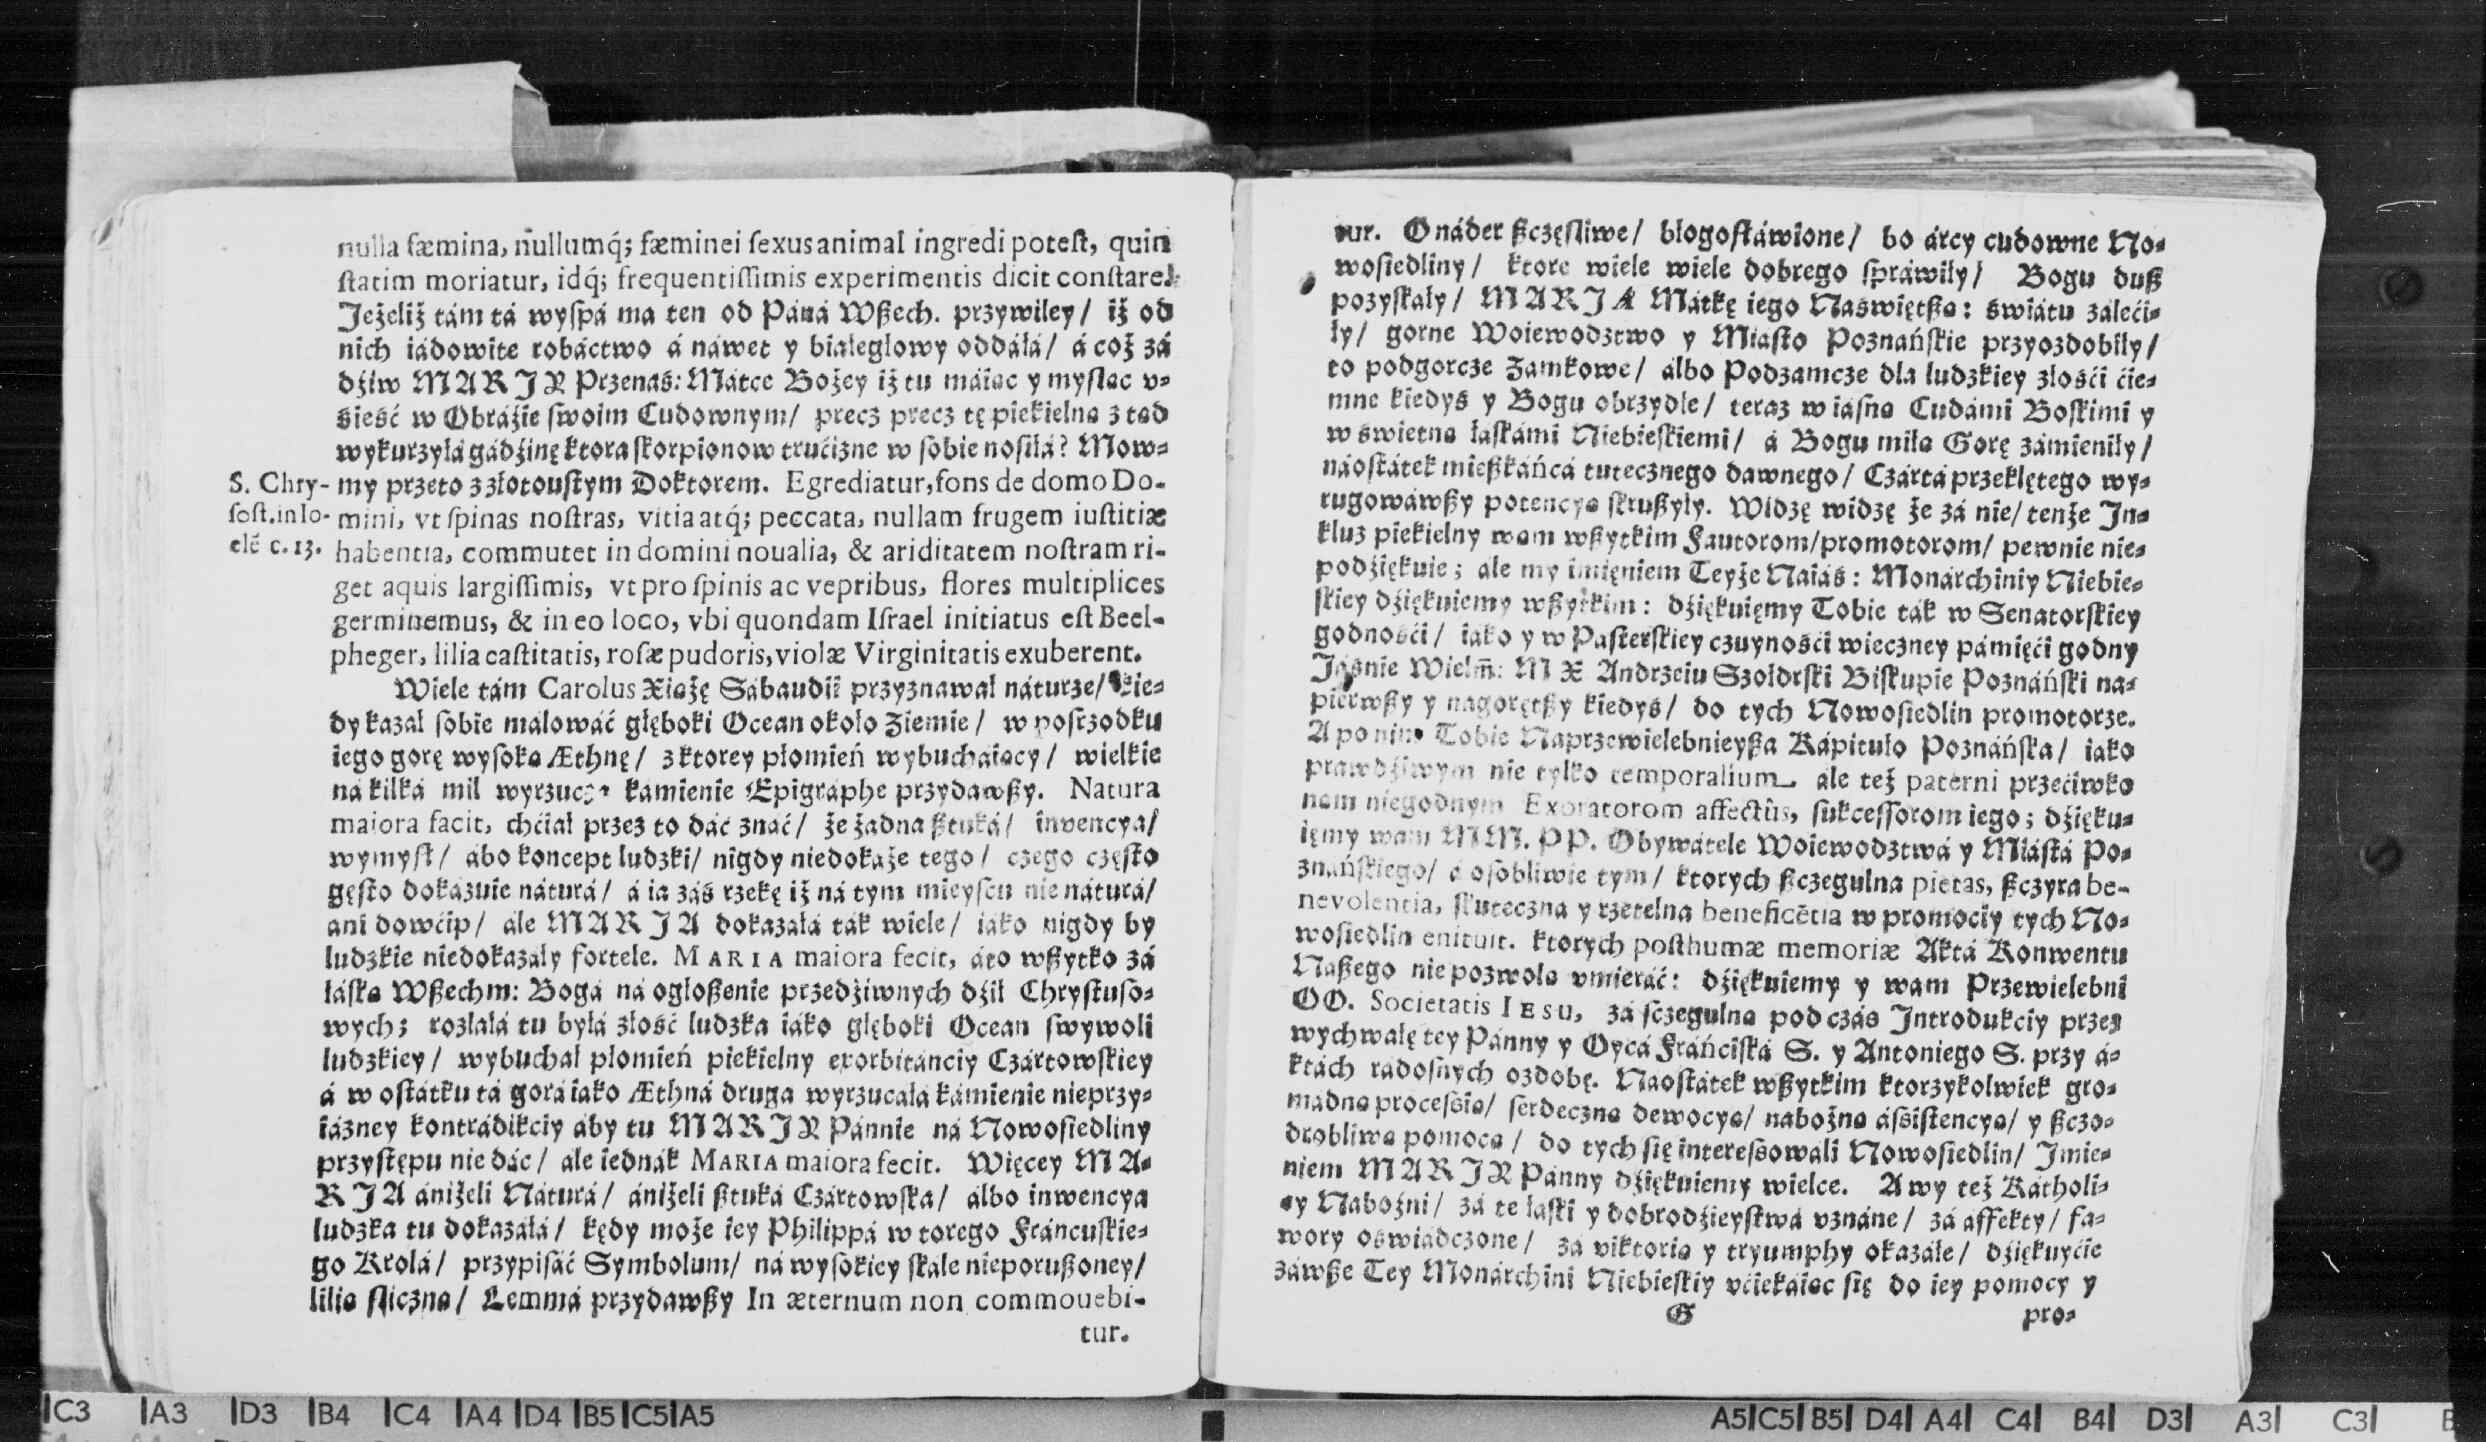 nulla fæmina, nullumq́; fæminei ſexus animal ingredi poteſt, quin
ſtatim moriatur, idq́; frequentiſſimis experimentis dicit conſtare.
Jeżeliż tám tá wyſpá ma ten od Páná Wßech. przywiley/ iż od
nich iádowite robáctwo á náwet y białegłowy oddála/ á coż zá
dźiw MARJĄ Przenaś: Mátce Bożey iż tu máiąc y myſląc v-
śieść w Obráźie ſwoim Cudownym/ precz precz tę piekielną z tąd
wykurzyłá gádźinę ktora ſkorpionow trućiznę w ſobie noſiłá? Mow-
my przeto z złotouſtym Doktorem. Egrediatur, fons de domo Do-
mini, vt ſpinas noſtras, vitia atq́; peccata, nullam frugem iuſtitiæ
habentia, commutet in domini noualia, & ariditatem noſtram ri-
get aquis largiſſimis, vt pro ſpinis ac vepribus, flores multiplices
germinemus, & in eo loco, vbi quondam Iſrael initiatus eſt Beel-
pheger, lilia caſtitatis, roſæ pudoris, violæ Virginitatis exuberent.
S. Chry-
ſoſt. in Io-
elē c. 13.
Wiele tám Carolus Xiążę Sábaudii przyznawał náturze/ kie-
dy kazał ſobie málowáć głęboki Ocean około Ziemie/ w poſrzodku
iego gorę wyſoką Æthnę/ z ktorey płomień wybucháiący/ wielkie
ná kilká mil wyrzuca kámienie Epigráphe przydawßy. Natura
maiora facit, chćiał przez to dáć znáć/ że żadna ßtuká/ inwencya/
wymyſł/ ábo koncept ludzki/ nigdy niedokaże tego/ czego często
gęſto dokázuie náturá/ á ia záś rzekę iż ná tym mieyſcu nie náturá/
ani dowćip/ ále MARJA dokazáłá ták wiele/ iáko nigdy by
ludzkie niedokazáły fortele. MARIA maiora fecit, áto wßytko zá
łáſką Wßechm: Bogá ná ogłoßenie przedźiwnych dźił Chryſtuſo-
wych; rozlałá tu byłá złość ludzka iáko głęboki Ocean ſwywoli
ludzkiey/ wybuchał płomień piekielny exorbitánciy Czártowſkiey
á w oſtátku tá gorá iáko Æthná druga wyrzucáłá kámienie nieprzy-
iázney kontrádikciy áby tu MARJĄ Pánnie ná Nowoſiedliny
przyſtępu nie dáć/ ale iednák MARIA maiora fecit. Więcey MA-
RJA ániżeli Náturá/ ániżeli ßtuká Czártowſka/ álbo inwencya
ludzka tu dokazáłá/ kędy może iey Philippá wtorego Fráncuſkie-
go Krolá/ przypiſáć Symbolum/ ná wyſokiey ſkale nieporußoney/
lilią ſliczną/ Lemmá przydawßy In æternum non commouebi-
tur.
tur. O náder ßczęſliwe/ błogoſłáwione/ bo árcy cudowne No-
woſiedliny/ ktore wiele wiele dobrego ſpráwiły/ Bogu duß
pozyſkały/ MARJĄ Mátkę iego Naświętßą: świátu zálećí-
ły/ gorne Woiewodztwo y Miáſto Poznáńſkie przyozdobiły/
to podgorcze Zamkowe/ albo Podzamcze dla ludzkiey złośći ćie-
mne kiedyś y Bogu obrzydłe/ teraz w iáſną Cudámi Boſkimi y
w świetną łáſkámi Niebieſkiemi/ á Bogu miłą Gorę zámieniły/
náoſtátek mießkáńcá tutecznego dawnego/ Czártá przeklętego wy-
rugowáwßy potencyą ſkrußyły. Widzę widzę że zá nie/ tenże In-
kluz piekielny wam wßytkim Fautorom/ promotorom/ pewnie nie-
podźiękuie; ale my imięniem Teyże Naiáś: Monárchiniy Niebie-
ſkiey dźiękuiemy wßytkim: dźiękuięmy Tobie ták w Senatorſkiey
godnośći/ iáko y w Páſterſkiey czuynośći wieczney pámięći godny
Jáśnie Wielm̃: M X Andrzeiu Szołdrſki Biſkupie Poznáńſki na-
pierwßy y nagorętßy kiedyś/ do tych Nowoſiedlin promotorze.
A po nim Tobie Naprzewielebnieyßa Kápituło Poznáńſka/ iáko
prawdźiwym nie tylko temporalium, ale też paterni przećiwko
nam niegodnym Exoratorom affectûs, ſukceſſorom iego; dźięku-
ięmy wam MM. PP. Obywátele Woiewodztwá y Miáſtá Po-
znáńſkiego/ á oſobliwie tym/ ktorych ßczegulna pietas, ßczyra be-
nevolentia, ſkuteczna y rzetelna beneficētia w promociy tych No-
woſiedlin enituit. ktorych poſthumæ memoriæ Aktá Konwentu
Náßego nie pozwolą vmieráć: dźiękuiemy y wam Przewielebni
OO. Societatis IESU, zá ſczegulną pod czás Introdukciy przez
wychwałę tey Pánny y Oycá Fráńciſká S. y Antoniego S. przy á-
ktách rádoſnych ozdobę. Náoſtátek wßytkim ktorzykolwiek gro-
mádną proceſsią/ ſerdeczną dewocyą/ nabożną áſsiſtencyą/ y ßczo-
drobliwą pomocą/ do tych się intereſsowáli Nowoſiedlin/ Imie-
niem MARJĄ Pánny dźiękuiemy wielce. A wy też Kátholi-
cy Nabożni/ zá te łáſki y dobrodźieyſtwá vznáne/ zá affekty/ fa-
wory oświádczone/ zá viktorią y tryumphy okazáłe/ dźiękuyćie
záwße Tey Monárchini Niebieſkiy vćiekáiąc się do iey pomocy y
G
pro-
C3 A3 D3 B4 C4 A4 D4 B5 C5 A5
A5 C5 B5 D4 A4 C4 B4 D3 A3 C3